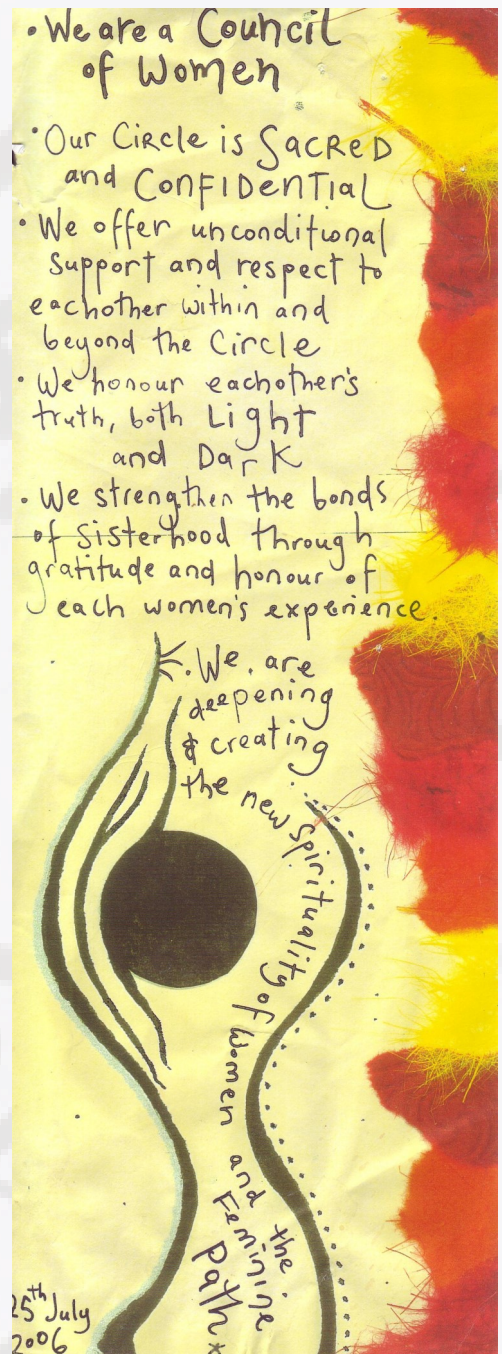 • We are a Council
of Women
• Our Circle is Sacred
and Confidential
• We offer unconditional
support and respect to
eachother within and
beyond the Circle
• We honour eachother's
truth, both Light
and Dark
• We strengthen the bonds
of Sisterhood through
gratitude and honour of
each women's experience.
• We are
deepening
& creating
the new Spirituality of Women and the
Feminine
Path *
25th July
2006